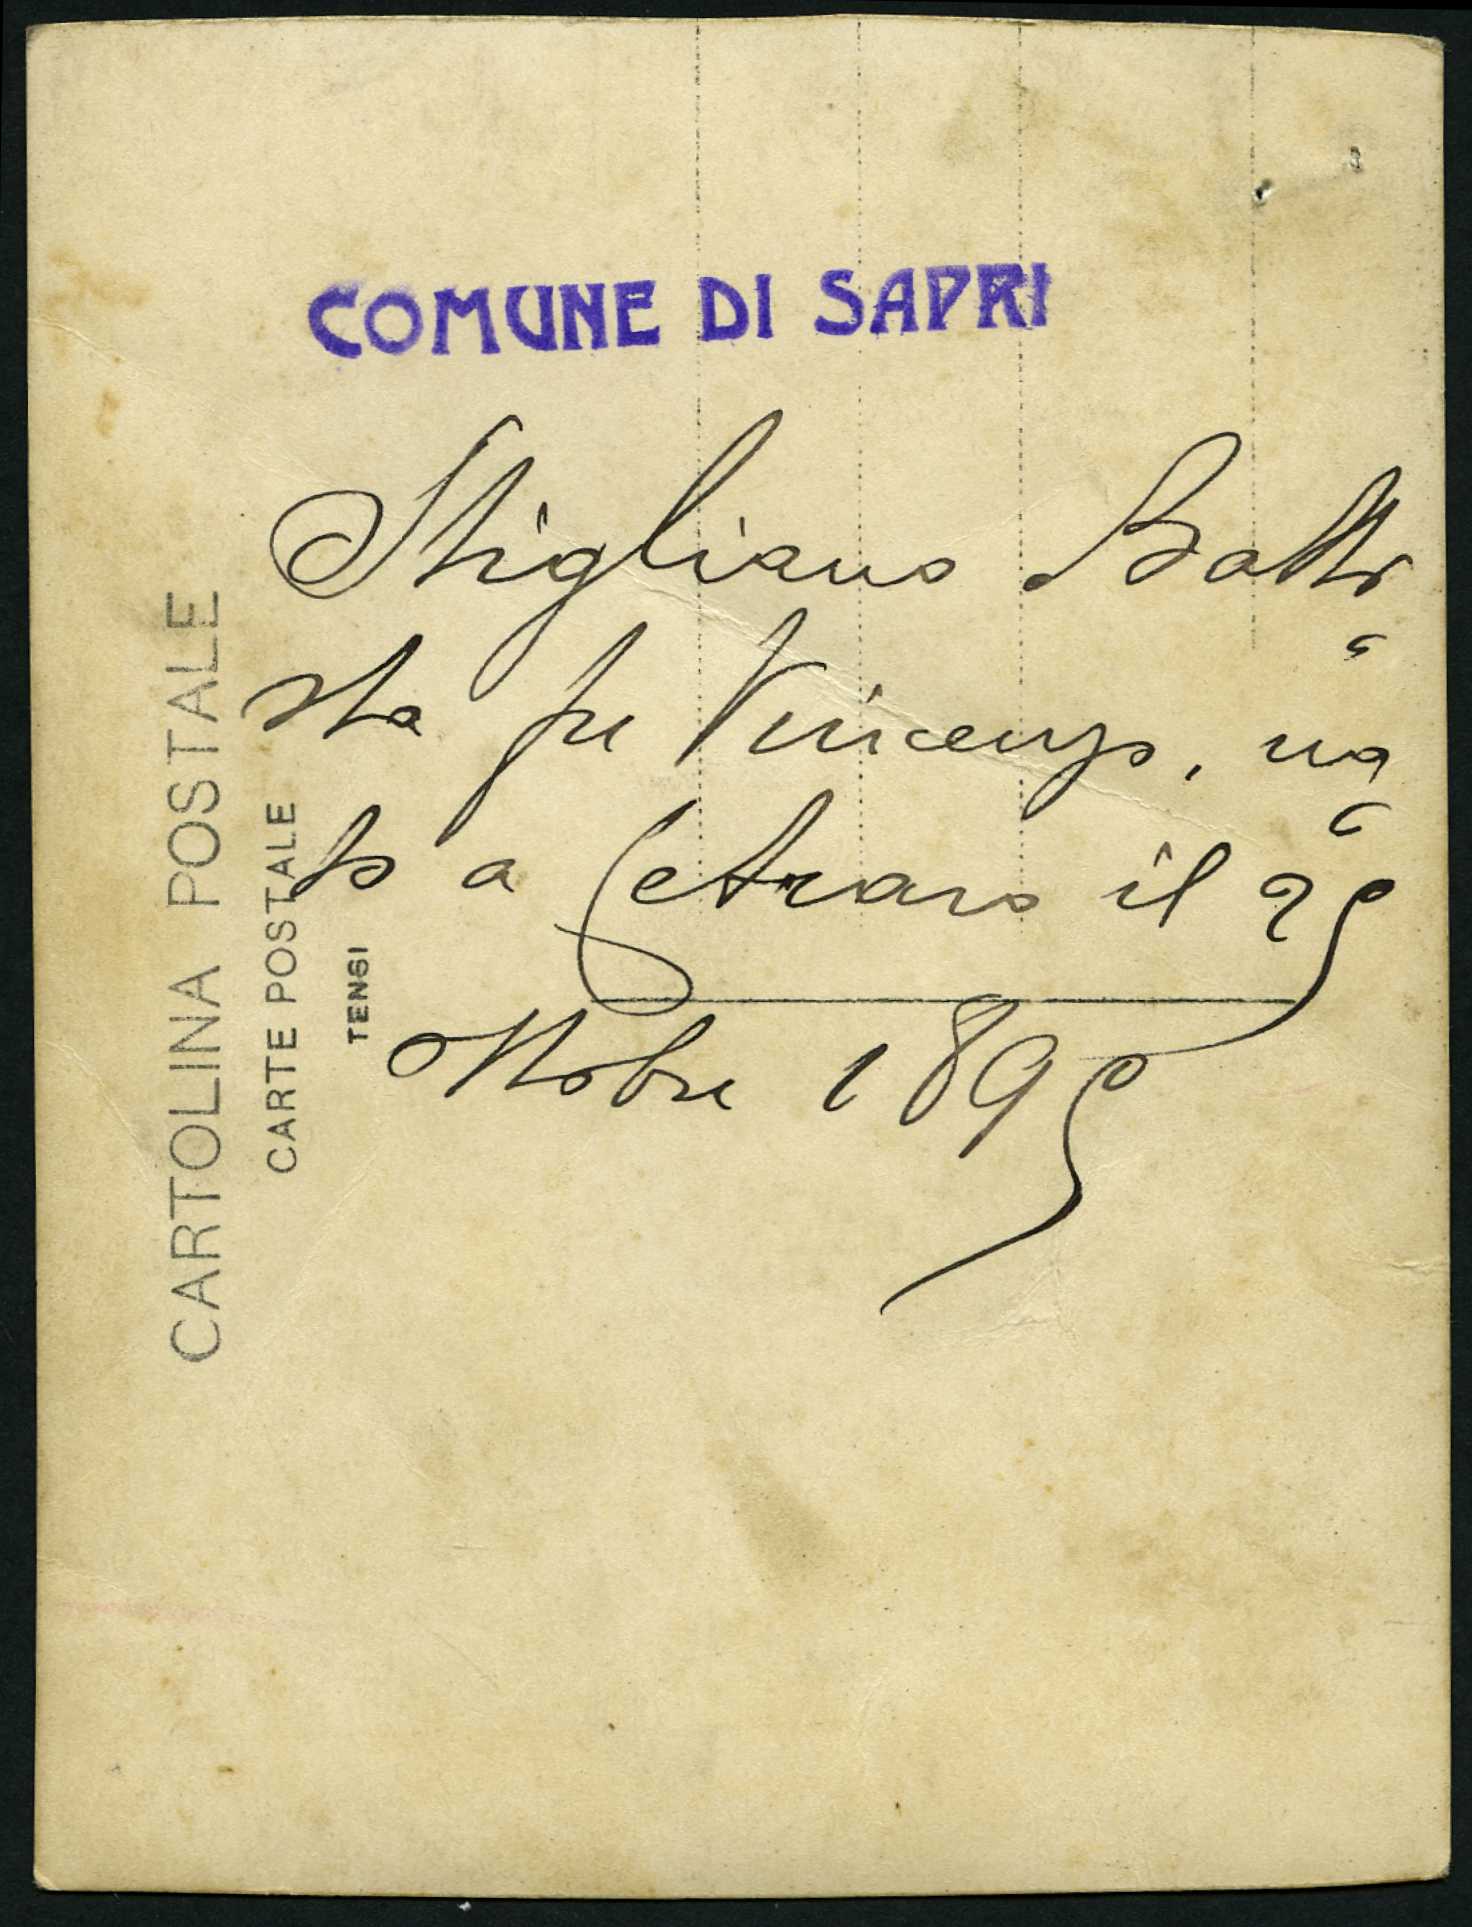 COMUNE DI SAPRI
Stigliano Batti
sta fu Vincenzo, na
to a Cetraro il 25
ottobre 1895
CARTOLINA POSTALE
CARTE POSTALE
TENSI